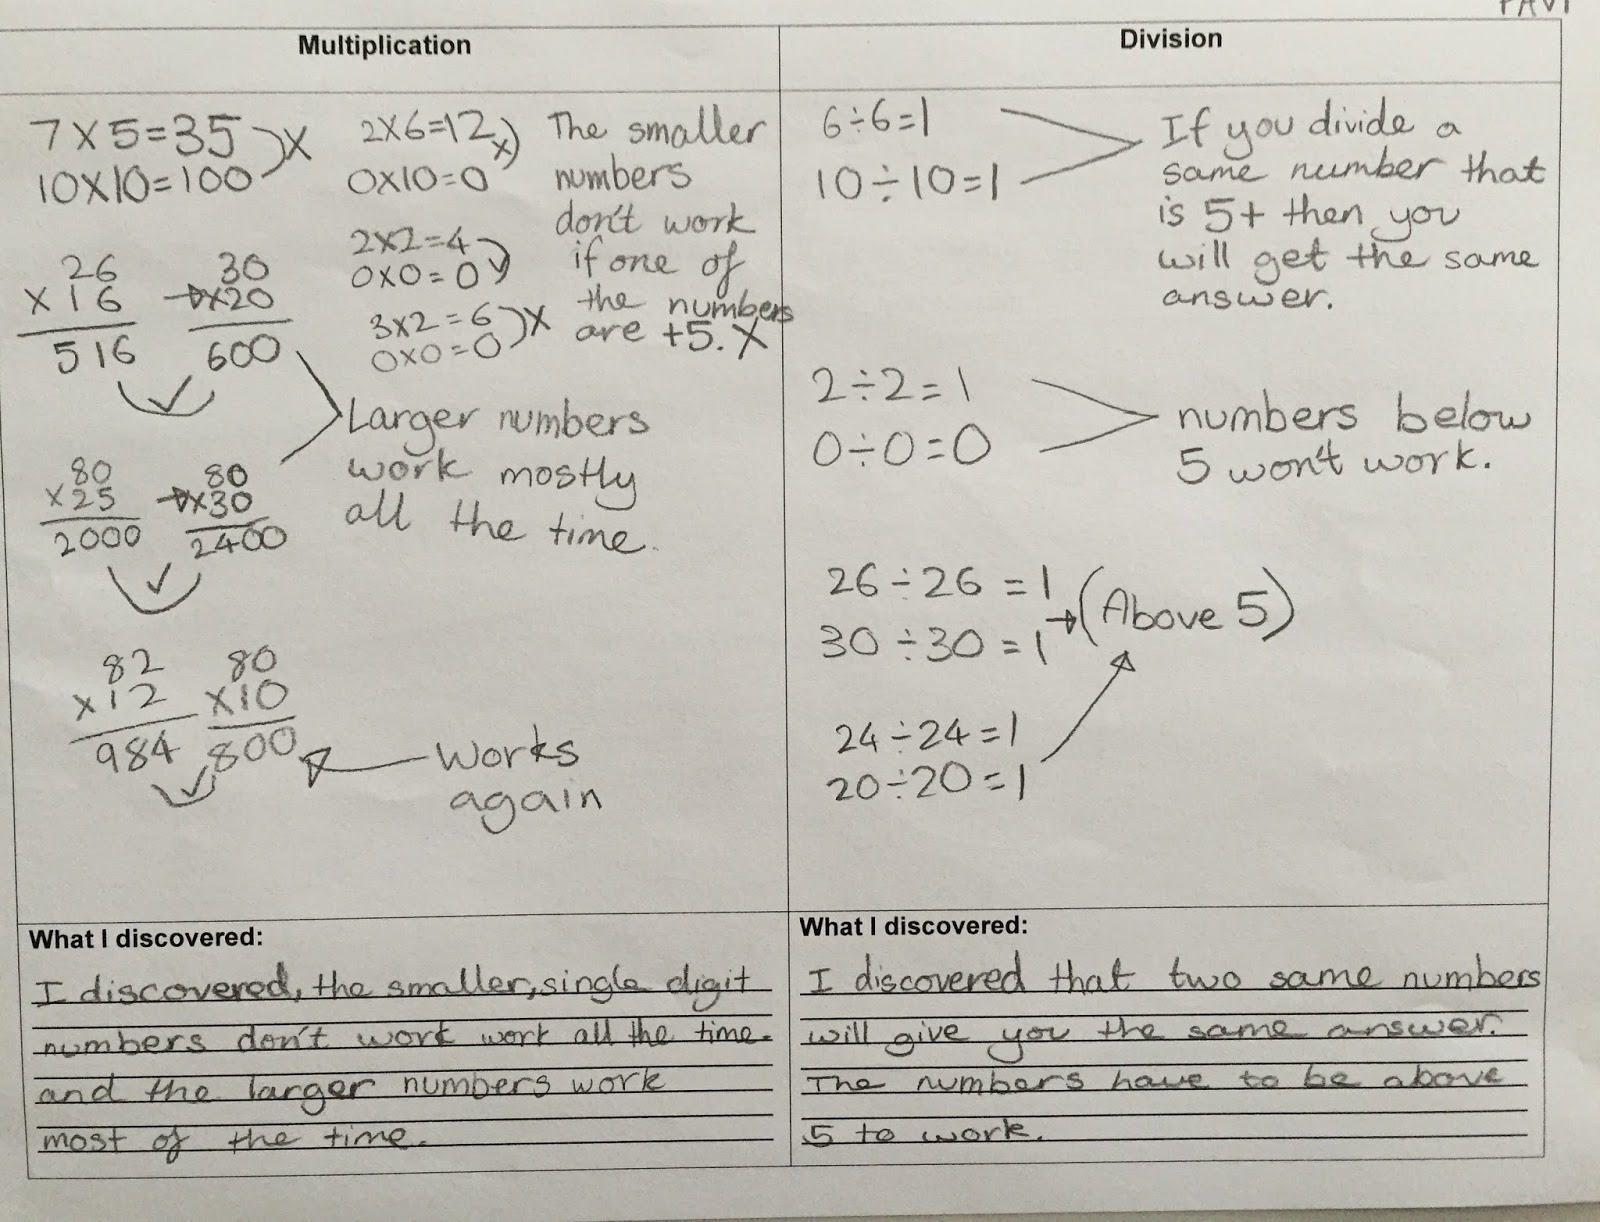 Multiplication
7×5=35
10×10=100
X
26
×16
516
30
×20
600
80
×25
2000
80
×30
2400
82
×12
984
80
×10
800
2×6=12
0×10=0
X
2×2=4
0×0=0
3×2=6
0×0=0
X
The smaller
numbers
don't work
if one of
the numbers
are +5. X
Larger numbers
work mostly
all the time.
Works
again
Division
6÷6=1
10÷10=1
If you divide a
same number that
is 5+ then you
will get the same
answer.
2÷2=1
0÷0=0
numbers below
5 won't work.
26÷26=1
30÷30=1
(Above 5)
24÷24=1
20÷20=1
What I discovered:
I discovered, the smaller, single digit
numbers don't work work all the time.
and the larger numbers work
most of the time.
What I discovered:
I discovered that two same numbers
will give you the same answer.
The numbers have to be above
5 to work.